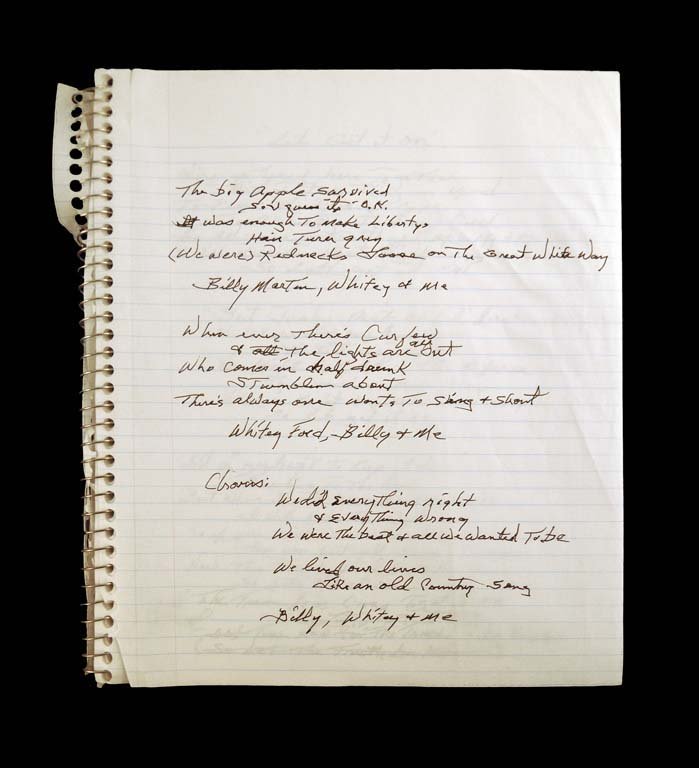 The big Apple survived
"O.K.
It was enough To Make Libertys
Hair Turn grey
(We were) Rednecks Loose on The Great White Way
Billy Martin, Whitey & Me
When ever There's Curfew
& all The lights are all out
Who comes in half drunk
STumblin about
There's always one wants To sing & shout
Whitey Ford, Billy & Me
Chorus:
We did everything right
& Everything wrong
We were The best & all we wanted To be
We lived our lives
Like an old Country Song
Billy, Whitey & Me